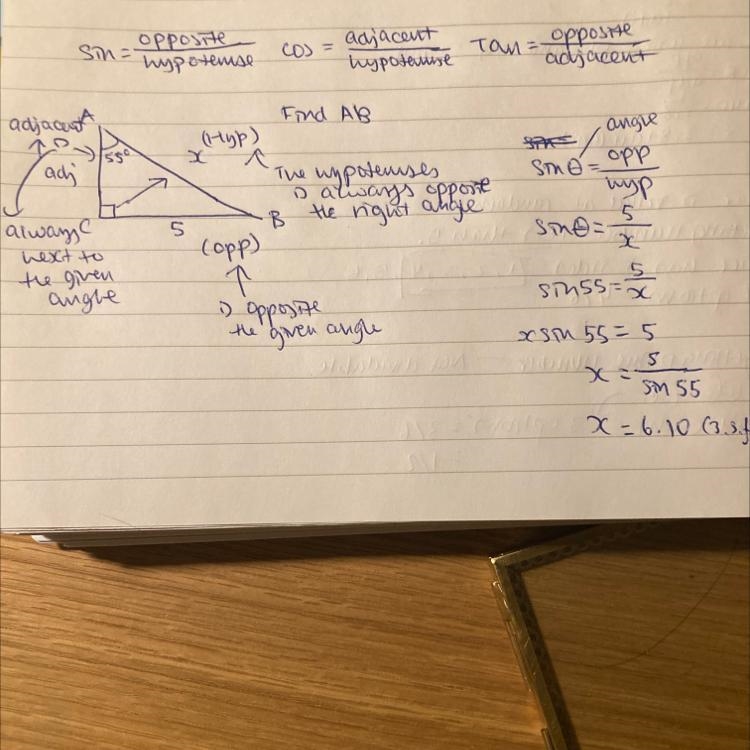 sin = opposite / hypotenuse cos = adjacent / hypotenuse Tan = opposite / adjacent
Find AB
A
adjacent
adj
55°
x
(Hyp)
The hypotenuses
is always opposite
the right angle
C
5
B
(opp)
is opposite
the given angle
always
next to
the given
angle
angle
sin θ = opp / hyp
sin θ = 5 / x
sin 55 = 5 / x
x sin 55 = 5
x = 5 / sin 55
x = 6.10 (3.s.f